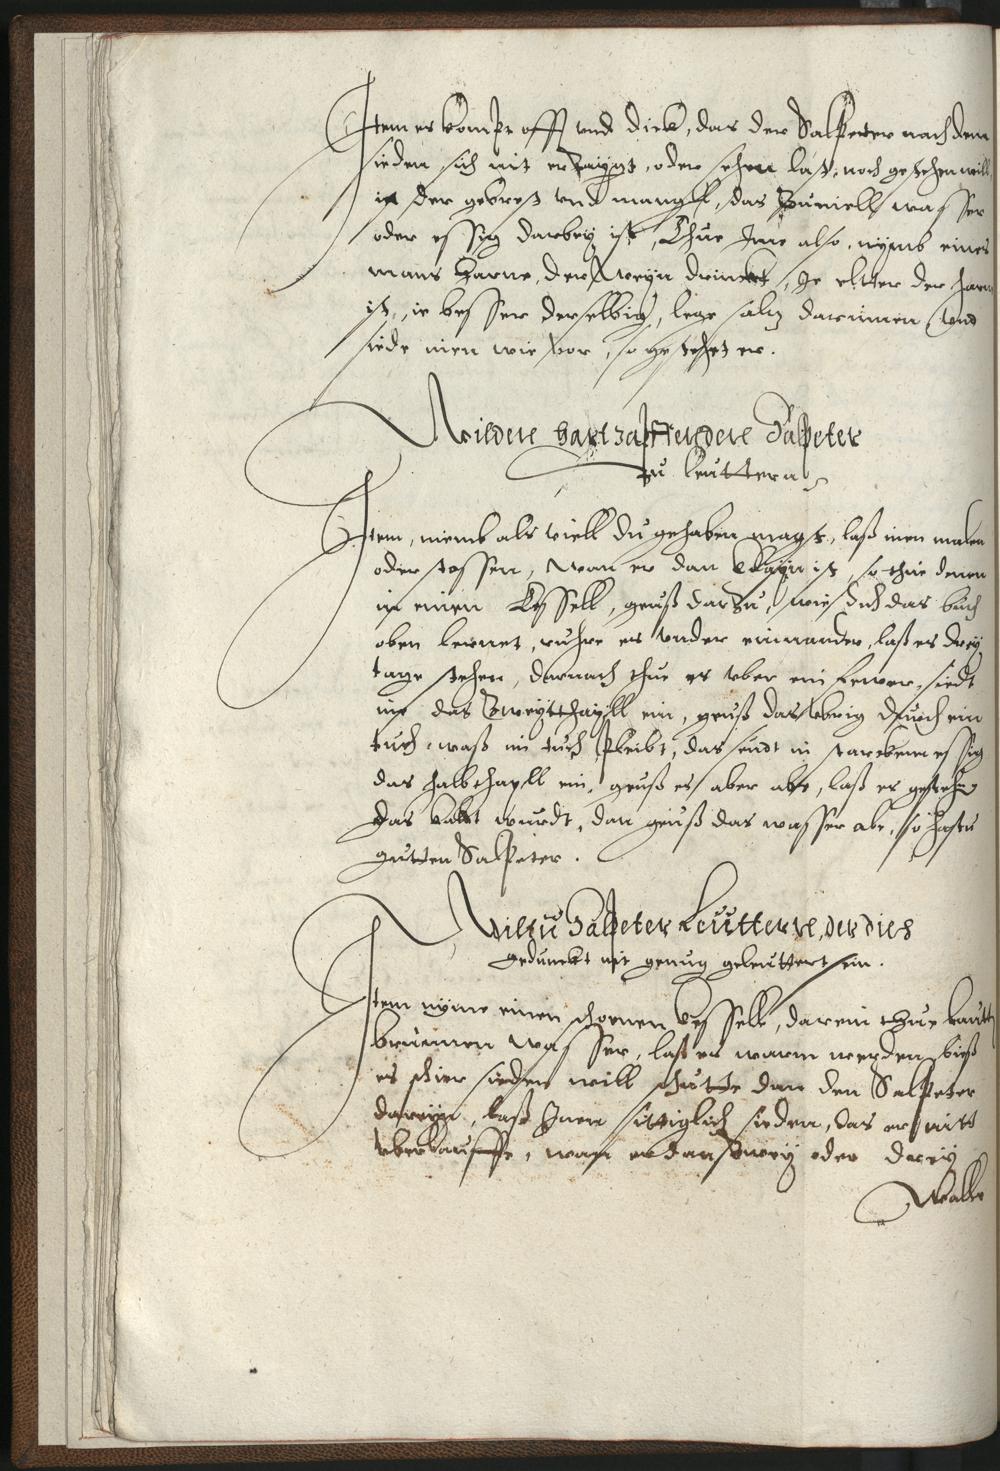 Item es kompt offt vnd dick, das der Salpeter nach dem
sieden sich nit erzaigt, oder sehen last, noch gestehen will,
ist der gebrest vnd mangell, das zuuiell wasser
oder essig darbey ist, Thue Ime also, nymb eines
mans harne, der Weyn drinckt, Je eltter der harn
ist, ie besser derselbig, lege saltz darinnen, vnd
siede inen wie vor, so gestehet er.
Wildere Salpeter
zu leuttern
Item, niemb als viell du gehaben magst, laß inen malen
oder stossen, wan er dan klayn ist, so thue denen
in einen Kessell, geuß darzu, wie dich das buch
oben lernet, ruhre es vnder einnander, laß es drey
tage stehen, darnach thue es vber ein Fewer, siedt
ime das zweytthayll ein, geuß das vbrig durch ein
tuch, waß im tuch pleibt, das seudt in starckem essig
das halbthayll ein, geuß es aber abe, laß es gestehn
das kalt wurdt, dan geuß das wasser abe, so hastu
gutten Salpeter.
Wiltu Salpeter Leutterre, der dich
gedunckt nit genug geleuttert sein.
Item nyme einen schonen Kessell, darein thue lautter
brunnen wasser, laß es warm werden, bieß
es schier sieden will, schutte dan den Salpeter
dareyn, laß Inen sittiglich sieden, das er nitt
vberlauffe, wan er dan zwey oder drey
Walle